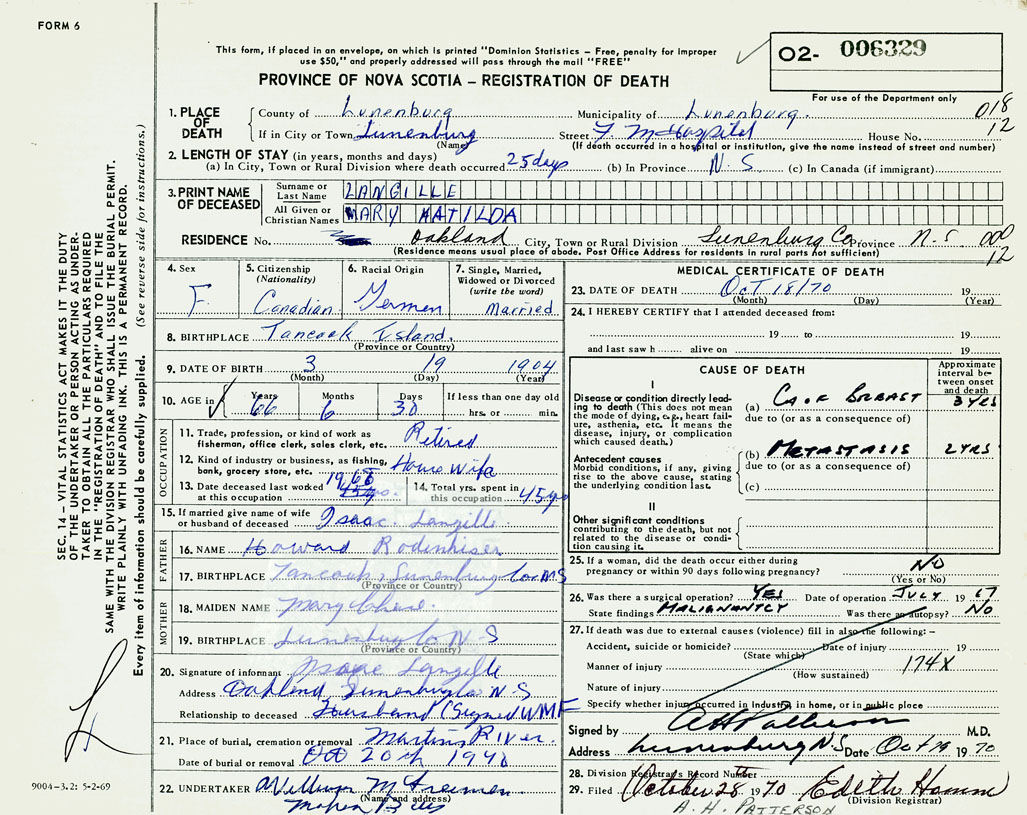 FORM 6
This form, if placed in an envelope, on which is printed "Dominion Statistics – Free, penalty for improper
use $50," and properly addressed will pass through the mail "FREE"
O2- 006329
PROVINCE OF NOVA SCOTIA – REGISTRATION OF DEATH
For use of the Department only
018
12
1. PLACE OF DEATH
County of Lunenburg Municipality of Lunenburg.
If in City or Town Lunenburg Street F M Hospital House No.
(Name) (If death occurred in a hospital or institution, give the name instead of street and number)
2. LENGTH OF STAY (in years, months and days)
(a) In City, Town or Rural Division where death occurred 25 days (b) In Province N.S (c) In Canada (if immigrant)
3. PRINT NAME OF DECEASED
Surname or Last Name LANGILLE
All Given or Christian Names MARY MATILDA
RESIDENCE No. Oakland City, Town or Rural Division Lunenburg Co Province N.S 000
12
(Residence means usual place of abode. Post Office Address for residents in rural parts not sufficient)
4. Sex F.
5. Citizenship (Nationality) Canadian
6. Racial Origin German
7. Single, Married, Widowed or Divorced (write the word) Married
8. BIRTHPLACE Tancook Island.
(Province or Country)
9. DATE OF BIRTH 3 19 1904
(Month) (Day) (Year)
10. AGE in Years 66 Months 6 Days 30 If less than one day old hrs. or min.
OCCUPATION
11. Trade, profession, or kind of work as fisherman, office clerk, sales clerk, etc. Retired
12. Kind of industry or business, as fishing, bank, grocery store, etc. House Wife
13. Date deceased last worked at this occupation 1968
14. Total yrs. spent in this occupation 45 yrs
15. If married give name of wife or husband of deceased Isaac Langille
FATHER
16. NAME Howard Rodenhiser
17. BIRTHPLACE Tancook, Lunenburg Co N S
(Province or Country)
MOTHER
18. MAIDEN NAME Mary Chase.
19. BIRTHPLACE Lunenburg Co N-S
(Province or Country)
20. Signature of informant Isaac Langille
Address Oakland Lunenburg Co N.S
Relationship to deceased Husband (Signed W M F
21. Place of burial, cremation or removal Martins River.
Date of burial or removal Oct 20th 1970
22. UNDERTAKER William M Freeman
(Name and address)
MEDICAL CERTIFICATE OF DEATH
23. DATE OF DEATH Oct 18/70 19
(Month) (Day) (Year)
24. I HEREBY CERTIFY that I attended deceased from:
19 to 19
and last saw h alive on 19
CAUSE OF DEATH
Approximate interval between onset and death
I
Disease or condition directly leading to death (This does not mean the mode of dying, e.g., heart failure, asthenia, etc. It means the disease, injury, or complication which caused death.)
(a) CA OF BREAST 3 YRS
due to (or as a consequence of)
Antecedent causes
Morbid conditions, if any, giving rise to the above cause, stating the underlying condition last.
(b) METASTASIS 2 YRS
due to (or as a consequence of)
(c)
II
Other significant conditions contributing to the death, but not related to the disease or condition causing it.
25. If a woman, did the death occur either during pregnancy or within 90 days following pregnancy? NO
(Yes or No)
26. Was there a surgical operation? YES Date of operation JULY 1967
State findings MALIGNANTCY Was there an autopsy? NO
27. If death was due to external causes (violence) fill in also the following: –
Accident, suicide or homicide? Date of injury 19
(State which)
Manner of injury 174X
(How sustained)
Nature of injury
Specify whether injury occurred in industry, in home, or in public place
Signed by A H Patterson M.D.
Address Lunenburg N.S Date Oct 19 1970
28. Division Registrar's Record Number
29. Filed October 28 1970 Edith Hamm
(Division Registrar)
A. H. PATTERSON
SEC. 14 – VITAL STATISTICS ACT MAKES IT THE DUTY
OF THE UNDERTAKER OR PERSON ACTING AS UNDERTAKER TO OBTAIN ALL THE PARTICULARS REQUIRED
IN THE "REGISTRATION OF DEATH" AND TO FILE THE
SAME WITH THE DIVISION REGISTRAR WHO SHALL ISSUE THE BURIAL PERMIT.
WRITE PLAINLY WITH UNFADING INK. THIS IS A PERMANENT RECORD.
Every item of information should be carefully supplied. (See reverse side for instructions.)
9004-3.2: 5-2-69